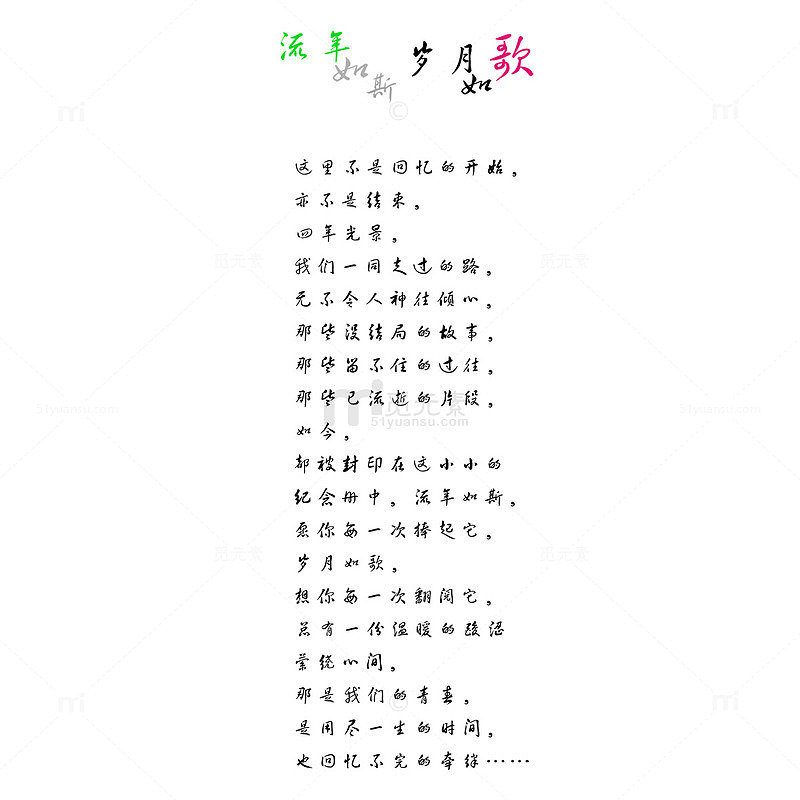 流年如斯 岁月如歌
这里不是回忆的开始，
亦不是结束，
四年光景，
我们一同走过的路，
无不令人神往倾心，
那些没结局的故事，
那些留不住的过往，
那些已流逝的片段，
如今，
都被封印在这小小的
纪念册中，流年如斯，
愿你每一次捧起它，
岁月如歌，
想你每一次翻阅它，
总有一份温暖的酸涩
萦绕心间，
那是我们的青春，
是用尽一生的时间，
也回忆不完的牵绊……
觅元素
51yuansu.com